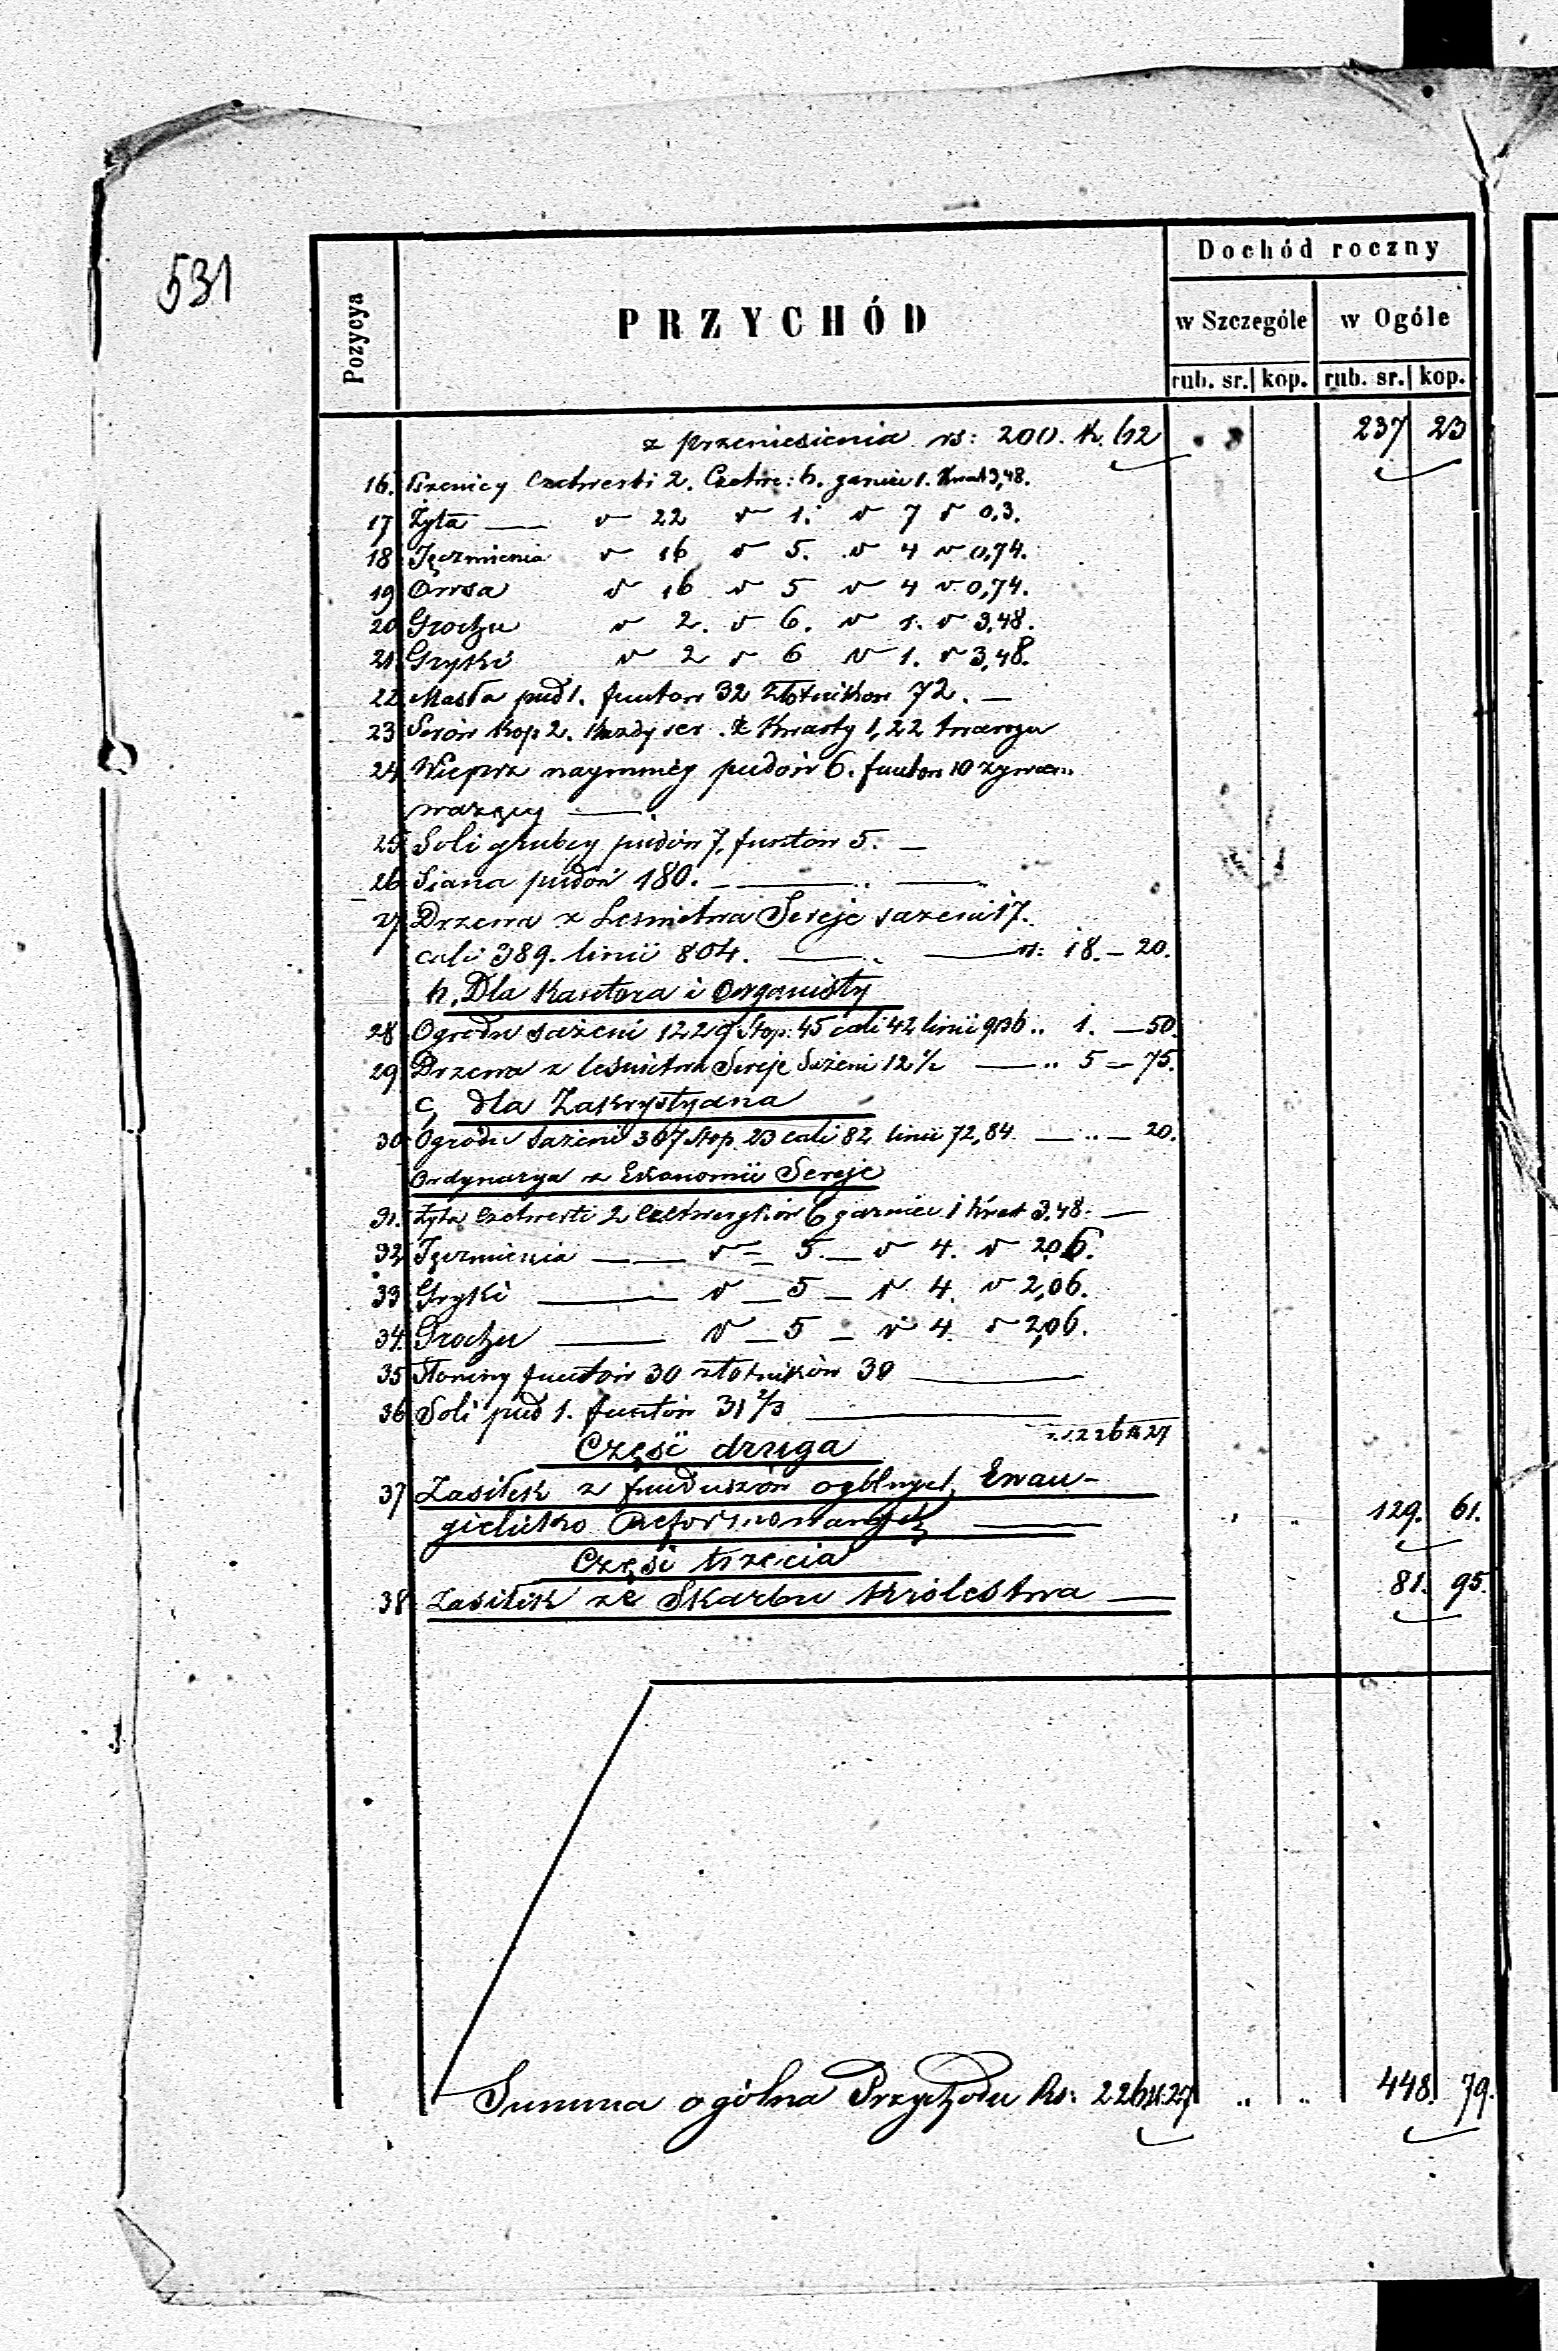 531
Pozycya
PRZYCHÓD
Dochód roczny
w Szczególe w Ogóle
rub. sr. kop. rub. sr. kop.
z przeniesienia rs: 200. k. 62 237 23
16. Pszenicy Czetwerti 2. Czetw: 6. garniec 1. Kwat 3,48.
17 Żyta — v 22 v 1. v 7 v 0.3.
18 Jęczmienia v 16 v 5. v 4 v 0,74.
19 Owsa v 16 v 5 v 4 v 0,74.
20 Grochu v 2. v 6. v 1. v 3,48.
21 Gryki v 2 v 6 v 1. v 3,48.
22 Masła pud 1. funtow 32 Złotnikow 72. —
23 Serów kop 2. każdy ser z Kwarty 1,22 twarogu
24 Wieprz naymniéy pudów 6. funtow 10 żywcem
ważący —.
25 Soli grubey pudów 7, funtow 5. —
26 Siana pudów 180. — —
27 Drzewa z Lesnictwa Sereje sażeni 17.
cali 389. linii 804. — — rs: 18. – 20.
b, Dla Kantora i Organisty
28 Ogrodu sażeni 1229 Stop: 45 cali 42 linii 936 .. 1. — 50.
29 Drzewa z leśnictwa Sereje Sażeni 12 ½ — .. 5 – 75.
c, dla Zakrystyana
30 Ogrodu Sażeni 307 Stop. 23 cali 82 linii 72,84. — .. — 20.
Ordynarya z Ekonomii Sereje
31. Żyta Czetwerti 2 Czetweryków 6 garniec 1 Kwat 3,48. —
32 Jęczmienia — v – 5. — v 4. v 2,06.
33 Gryki — v — 5 – v 4. v 2,06.
34. Grochu — v — 5 – v 4. v 2,06.
35 Słoniny funtów 30 złotników 30 —
36 Soli pud 1. funtów 31 ⅔ —
rs. 226 k 27
Częsć druga
37 Zasiłek z funduszów ogólnych Ewan-
gielicko Reformowanych — 129. 61.
Częsć trzecia
38 Zasiłek ze Skarbu Królestwa — 81. 95.
Summa ogólna Przychodu Rs: 226 k. 27 .. .. 448. 79.